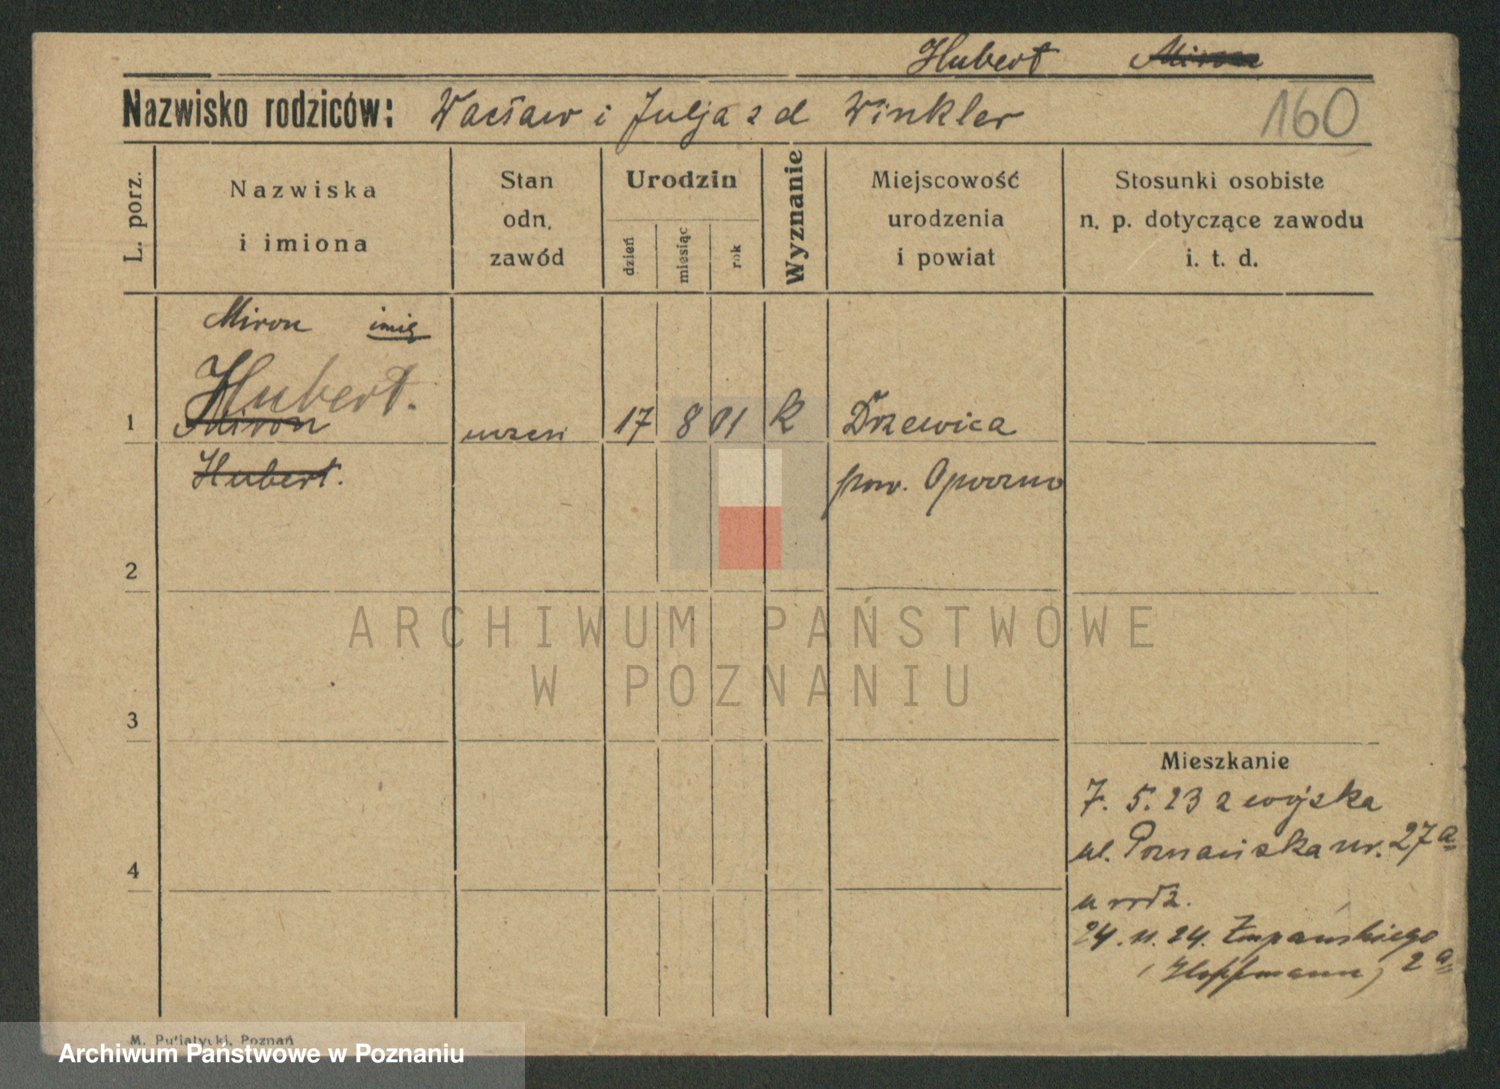 Hubert Miron
Nazwisko rodziców: Wacław i Julja z d Winkler 160
L. porz.
Nazwiska
i imiona
Stan
odn.
zawód
Urodzin
dzień
miesiąc
rok
Wyznanie
Miejscowość
urodzenia
i powiat
Stosunki osobiste
n. p. dotyczące zawodu
i. t. d.
Miron imię
Hubert.
1 Miron 17 8 01 k Drzewica
Hubert. pow. Opoczno
2
3
Mieszkanie
7. 5. 23 z wojska
ul. Poznańska nr. 27a
4
u rodz.
24. 11. 24. Żupańskiego
(Hoffmann) 2a
M. Putiatycki, Poznań
ARCHIWUM PAŃSTWOWE
W POZNANIU
Archiwum Państwowe w Poznaniu